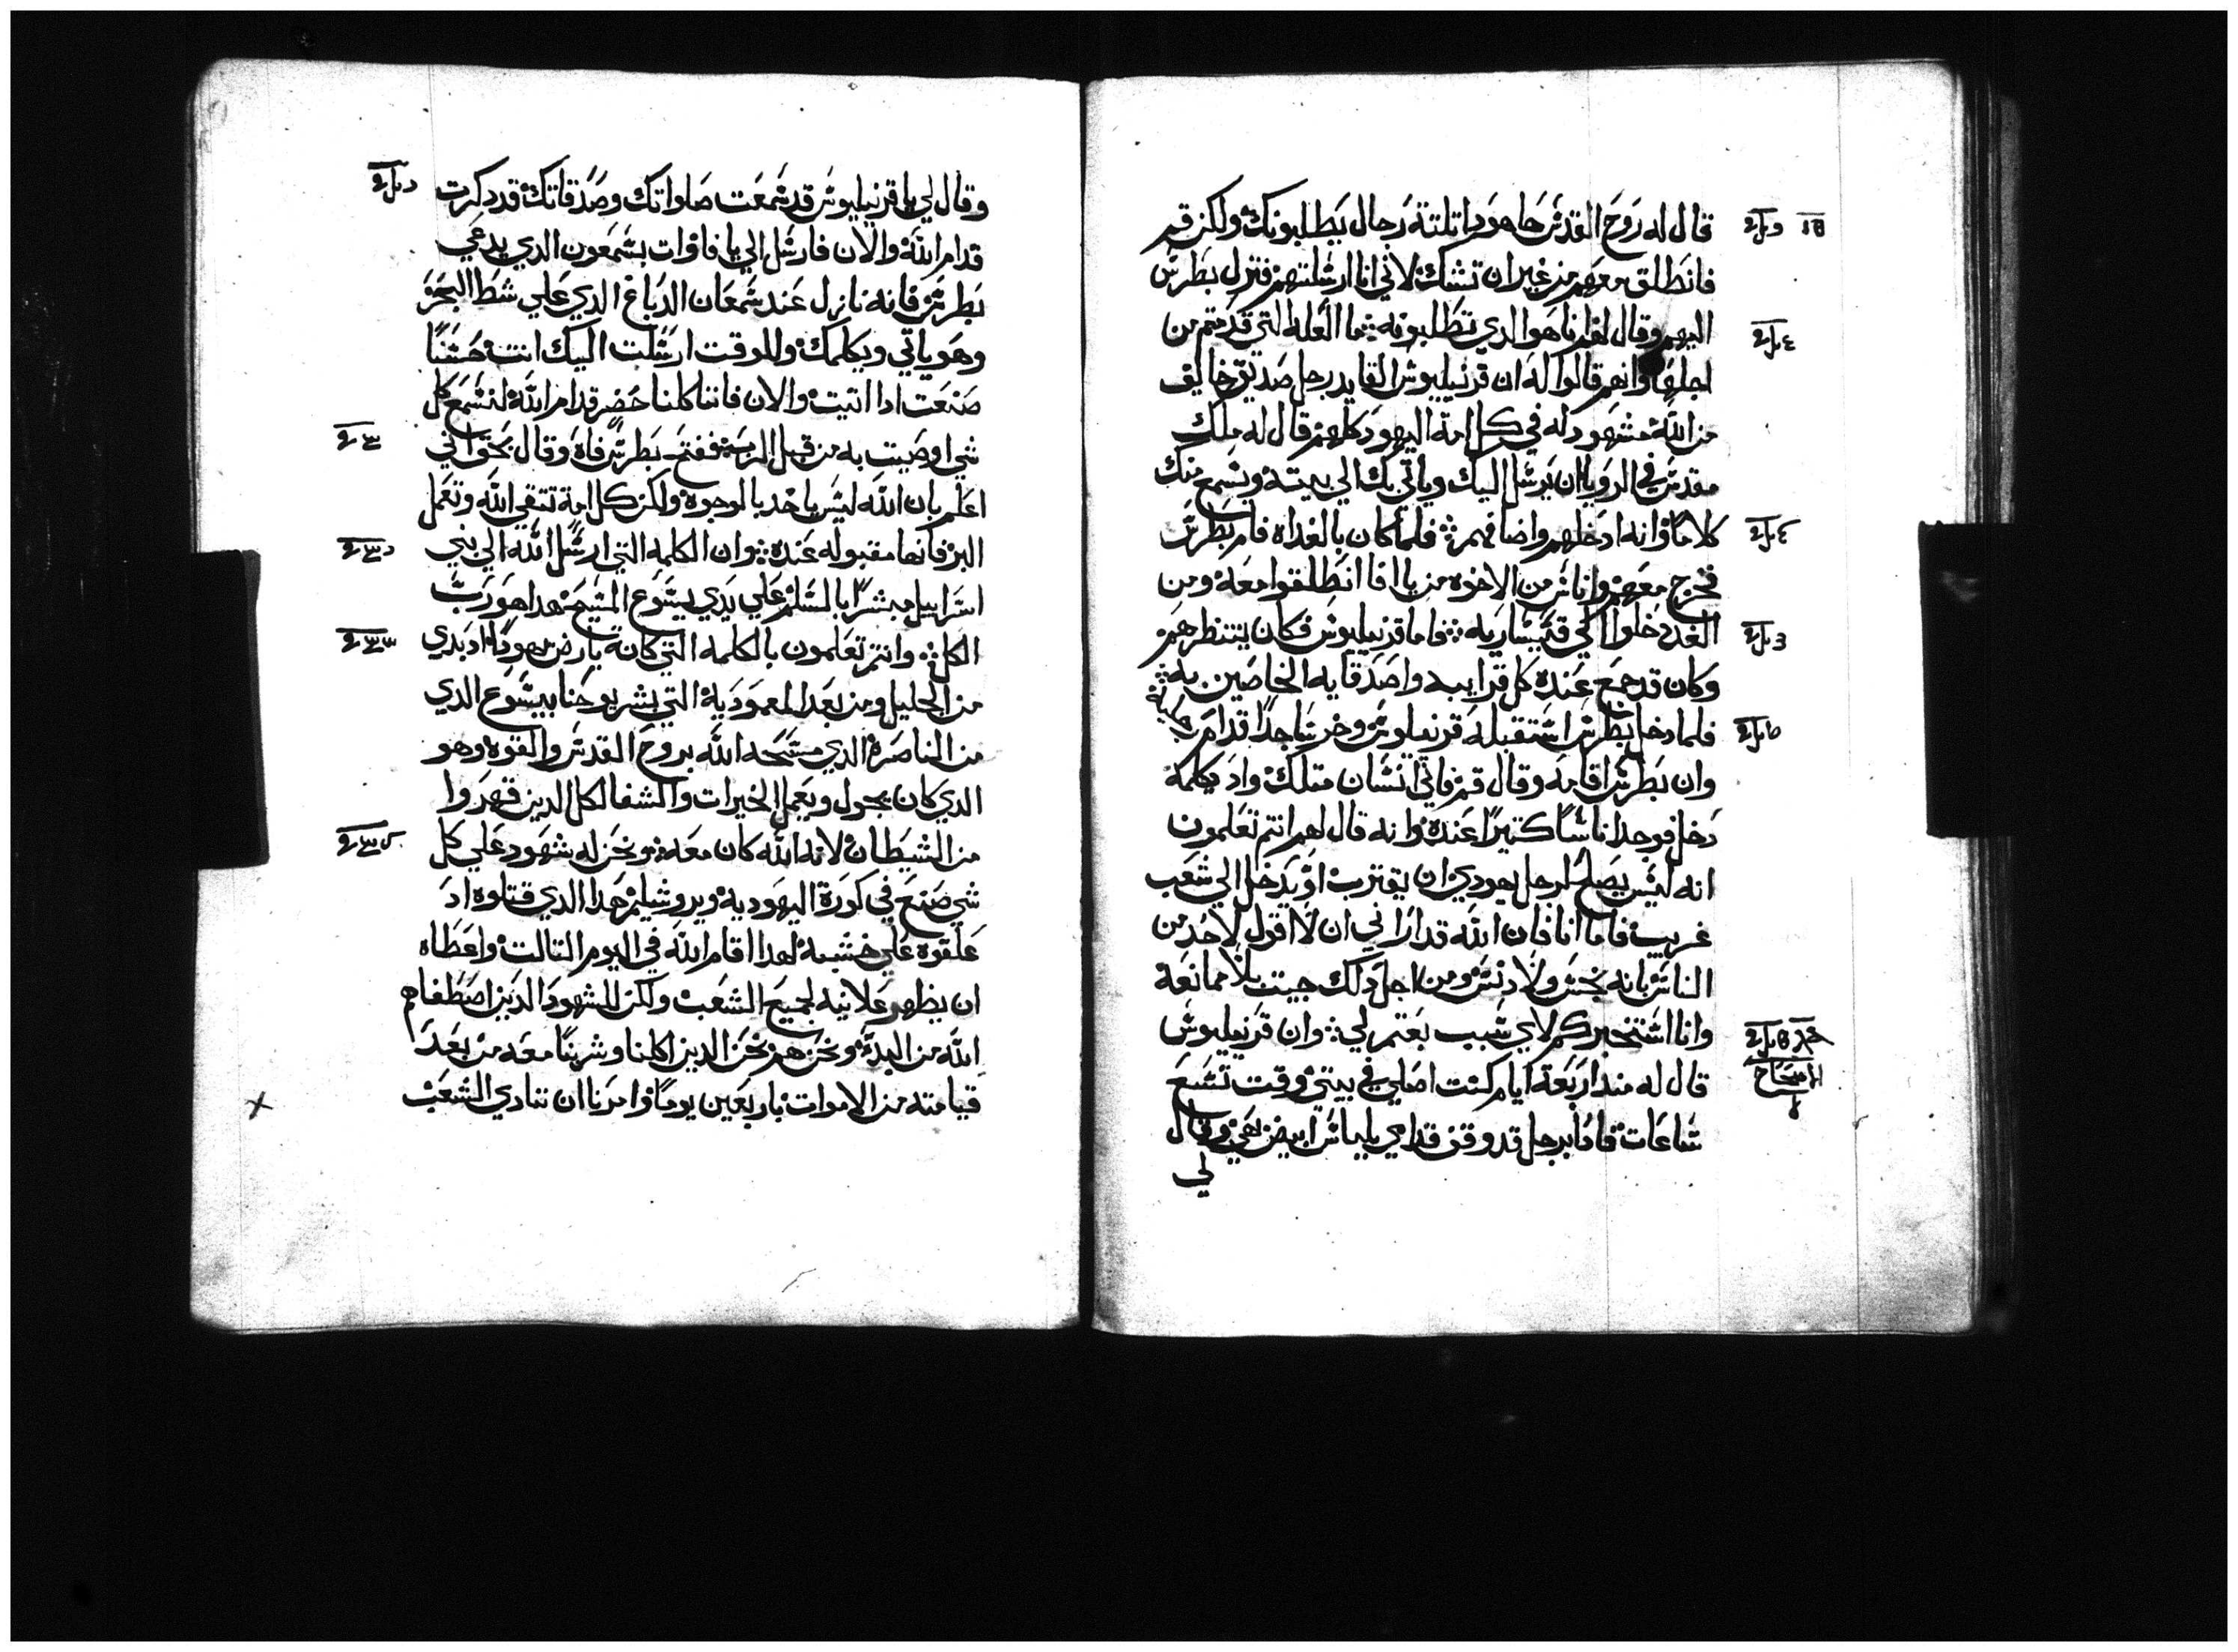 قال له روح القدس هاهوذا تلتة رجال يطلبونك ولكن قم
فانطلق معهم من غير ان تشك لاني انا ارسلتهم فنزل بطرس
اليهم وقال لهم انا هوا الدي تطلبونه ÷ ما العلة التي قدمتم من
اجلها وانهم قالوا له ان قرنيليوس القايد رجل صديق خايف
من الله مشهود له في كل امة اليهود كلهم قال له ملك
مقدس في الرويا ان يرسل اليك وياتي بك الي بيته وتسمع منك
كلامًا وانه ادخلهم واضافهم ÷ فلما كان بالغداه قام بطرس
فخرج معهم واناس من الاخوه من يافا انطلقوا معه ومن
الغد دخلوا الي قيسارية ÷ فاما قرنيليوس فكان ينتظرهم
وكان قد جمع عنده كل قرايبه واصدقايه الخاصين به ÷
فلما دخل بطرس استقبله قرنيليوس وخر ساجدًا قدام
وان بطرس اقامه وقال قم فاني انسان متلك واد يكلمه
دخل فوجد اناسًا كتيرًا عنده وانه قال لهم انتم تعلمون
انه ليس يصلح لرجل يهودي ان يقترب او يدخل الي شعب
غريب فاما انا فان الله قد اراني ان لا اقول لاحد من
الناس بانه نجس ولا دنس ومن اجل دلك جيت بلا ممانعة
وانا استخبركم لاي سبب بعتم لي ÷ وان قرنيليوس
قال له مند اربعة ايام كنت اصلي في بيتي وقت تسع
ساعات فادا برجل قد وقف قدامي بلباس ابيض بهي وقال
لي
الاصحاح
وقال لي يا قرنيليوس قد سمعت صلواتك وصدقاتك قد دكرت
قدام الله والان فارسل الي يافا وات بشمعون الدي يدعي
بطرس فانه نازل عند شمعان الدباغ الدي علي شط البحر
وهو ياتي ويكلمك وللوقت ارسلت اليك انت حسنًا
صنعت ادا اتيت والان فاننا كلنا حضر قدام الله لنسمع كل
شي اوصيت به من قبل الرب ÷ ففتح بطرس فاه وقال بحق اني
اعلم بان الله ليس ياخد بالوجوه ولكن كل امة تتقي الله وتعمل
البر فانها مقبوله عنده ÷ وان الكلمه التي ارسل الله الي بني
اسراييل مبشرًا بالسلم علي يدي يسوع المسيح هدا هو رب
الكل ÷ وانتم تعلمون بالكلمه التي كانة بارض يهودا اد بدي
من الجليل ومن بعد المعمودية التي بشر يوحنا بيسوع الدي
من الناصرة الدي مسحه الله بروح القدس والقوه وهو
الدي كان يجول ويعمل الخيرات والشفا لكل الدين قهروا
من الشيطان لانه الله كان معه ونحن له شهود علي كل
شي صنع في كورة اليهودية ويروشليم هدا الدي قتلوه اد
علقوه علي خشبة لهدا اقام الله في اليوم التالت واعطاه
ان يظهر علانية لجميع الشعب ولكن للشهود الدين اصطفاهم
الله من البدء ونحن هم نحن الدين اكلنا وشربنا معه من بعد
قيامته من الاموات باربعين يومًا وامرنا ان ننادي الشعب